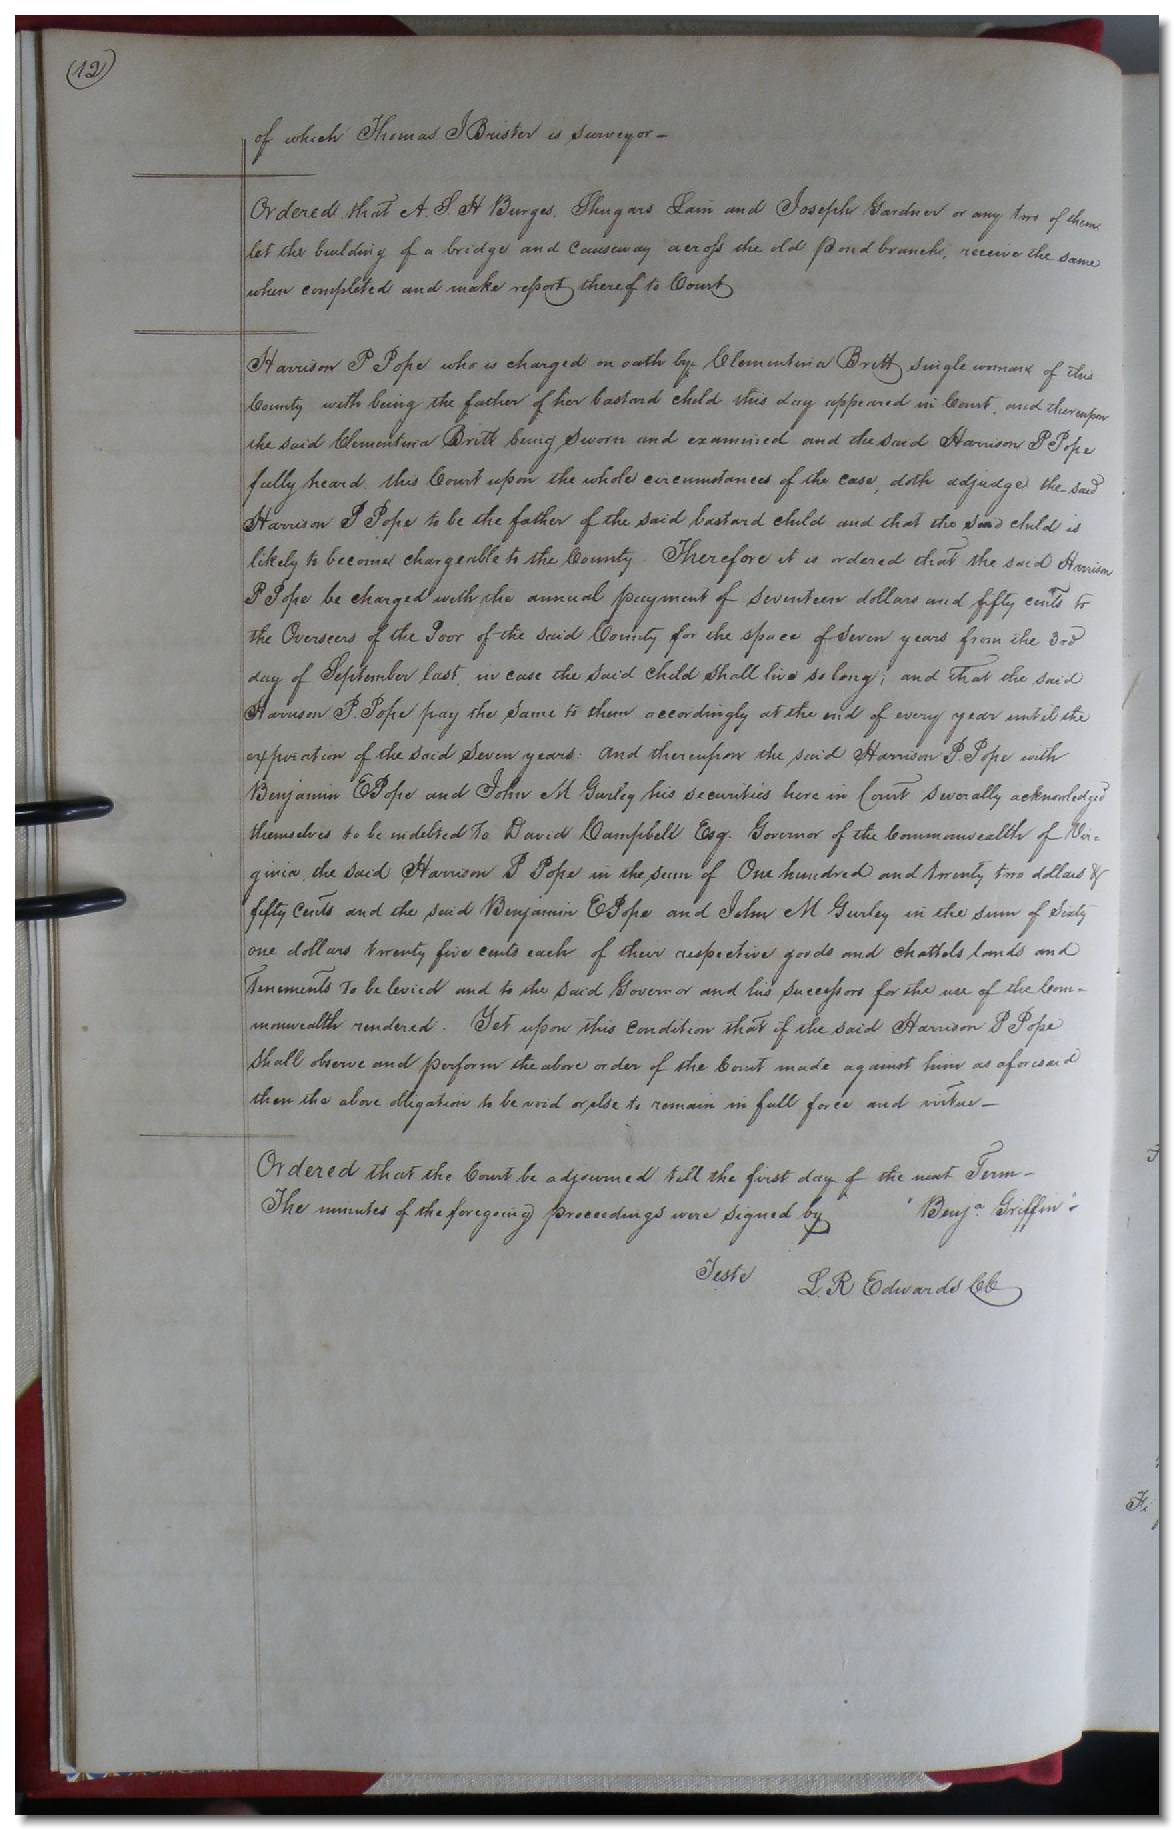 (12)
of which Thomas J Brister is surveyor –
Ordered that A. S. H Burges, Shugars Lain and Joseph Gardner or any two of them
let the building of a bridge and causeway across the old Pond branch, receive the same
when completed and make report thereof to Court
Harrison P Pope who is charged on oath by Clementina Britt single woman of this
County with being the father of her bastard child this day appeared in Court, and thereupon
the said Clementina Britt being sworn and examined and the said Harrison P Pope
fully heard, this Court upon the whole circumstances of the case, doth adjudge the said
Harrison P Pope to be the father of the said bastard child and that the said child is
likely to become chargeable to the County. Therefore it is ordered that the said Harrison
P Pope be charged with the annual payment of Seventeen dollars and fifty cents to
the Overseers of the Poor of the said County for the space of Seven years from the 3rd
day of September last, in case the said child shall live so long; and that the said
Harrison P. Pope pay the same to them accordingly at the end of every year until the
expiration of the said Seven years: and thereupon the said Harrison P. Pope with
Benjamin E Pope and John M Gurley his securities here in Court severally acknowledged
themselves to be indebted To David Campbell Esq. Governor of the Commonwealth of Vir-
ginia, the said Harrison P Pope in the sum of One hundred and twenty two dollars &
fifty Cents and the said Benjamin E Pope and John M Gurley in the sum of Sixty
one dollars twenty five cents each of their respective goods and chattels lands and
Tenements To be levied and to the said Governor and his successors for the use of the Com-
monwealth rendered. Yet upon this condition that if the said Harrison P Pope
shall observe and perform the above order of the Court made against him as aforesaid
then the above obligation to be void or else to remain in full force and virtue –
Ordered that the Court be adjourned till the first day of the next Term –
The minutes of the foregoing proceedings were signed by "Benja. Griffin"
Teste L. R Edwards CC